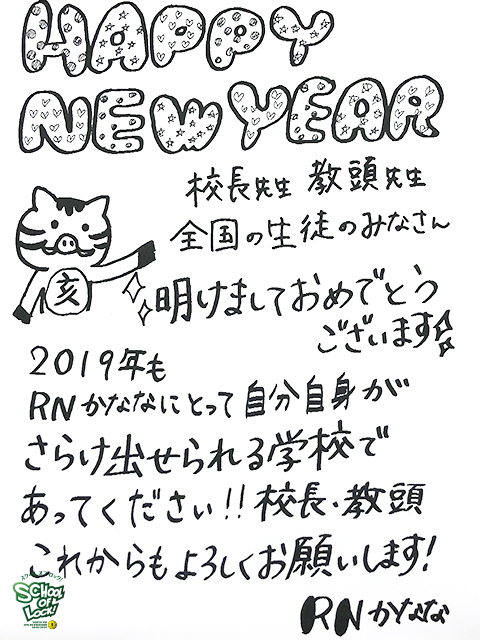 HAPPY
NEW YEAR
校長先生 教頭先生
全国の生徒のみなさん
亥
明けましておめでとう
ございます
2019年も
RNかななにとって自分自身が
さらけ出せられる学校で
あってください!!校長・教頭
これからもよろしくお願いします!
RNかなな
SCHOOL
OF
LOCK!